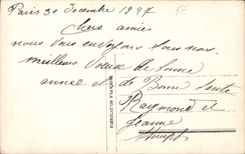 Paris 30 Decembre 1927
Chers amies
nous vous envoyons tous nos
meilleurs voeux de bonne
annee et de Bonne Santé
Raymond et
Jeanne
FABRICATION FRANÇAISE